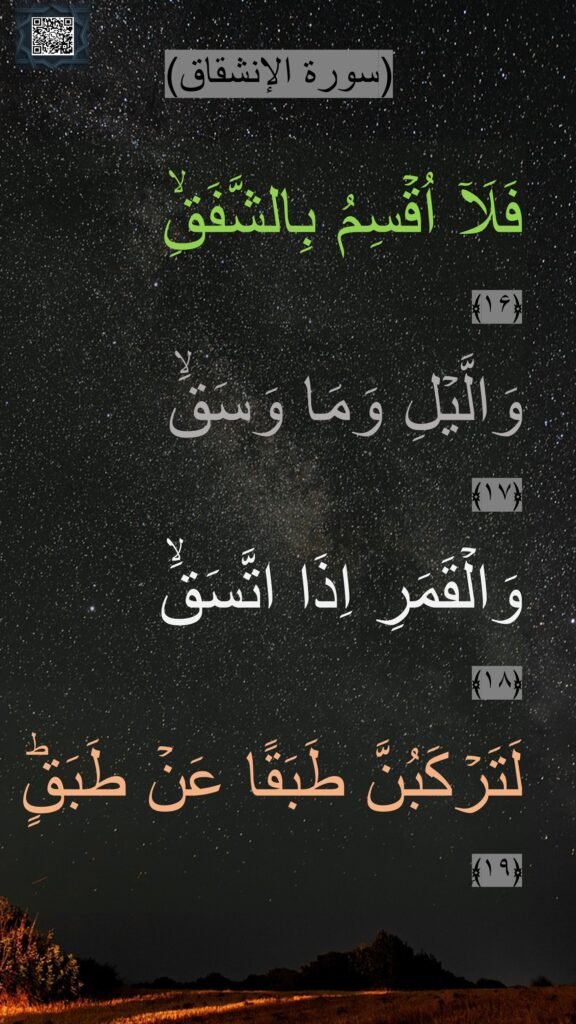 (سورة الإنشقاق)
فَلَآ اُقۡسِمُ بِالشَّفَقِۙ
﴿۱۶﴾
وَالَّيۡلِ وَمَا وَسَقَۙ
﴿۱۷﴾
وَالۡقَمَرِ اِذَا اتَّسَقَۙ
﴿۱۸﴾
لَتَرۡكَبُنَّ طَبَقًا عَنۡ طَبَقٍؕ
﴿۱۹﴾